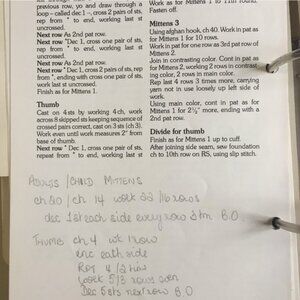 previous row, yo and draw through a
loop – called dec 1 –, cross 2 pairs of sts,
rep from * to end, working last st
uncrossed.
Next row As 2nd pat row.
Next row * Dec 1, cross one pair of sts,
rep from * to end, working last st
uncrossed.
Next row As 2nd pat row.
Next row * Dec 1, cross 2 pairs of sts, rep
from *, ending with cross one pair of sts,
work last st uncrossed.
Finish as for Mittens 1.
Thumb
Cast on 4 sts by working 4 ch, work
across 8 skipped sts keeping sequence of
crossed pairs correct, cast on 3 sts (3 ch).
Work even until work measures 2" from
base of thumb.
Next row * Dec 1, cross one pair of sts,
repeat from * to end, working last st
Work as for Mittens 1 to 11th round.
Fasten off.
Mittens 3
Using afghan hook, ch 40. Work in pat as
for Mittens 1 for 10 rows.
Work in pat for one row as 3rd pat row of
Mittens 2.
Join in contrasting color. Cont in pat as
for Mittens 2, working 2 rows in contrast-
ing color, 2 rows in main color.
Rept last 4 rows 3 times more, carrying
yarn not in use loosely up left side of
work.
Using main color, cont in pat as for
Mittens 1 for 2½" more, ending with a
2nd pat row.
Divide for thumb
Finish as for Mittens 1 up to cuff.
After joining side seam, sew foundation
ch to 10th row on RS, using slip stitch.
ADULTS / CHILD MITTENS
ch 20 / ch 14 work 22 / 16 rows
dec 1st each side every row 2 tm B.O.
THUMB ch 4 wk 1 row
inc each side
Rpt 4 / 2 now
work 5/3 rows even
Dec sts next row B.O.